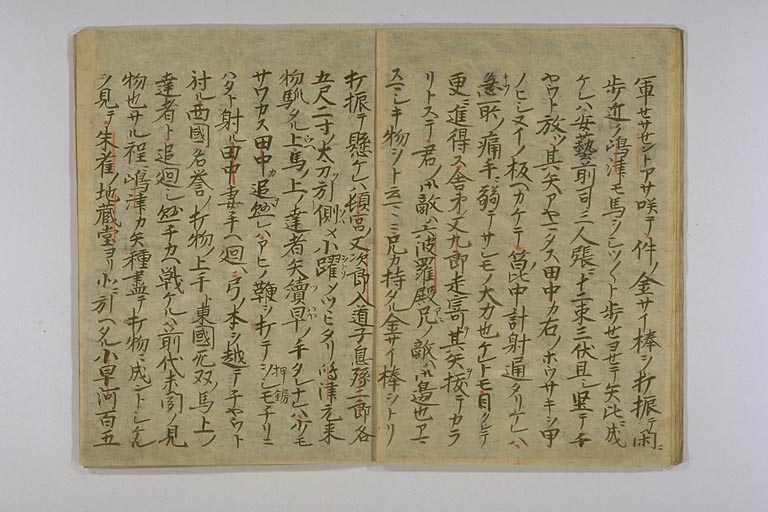 軍セサセントアサ咲テ件ノ金サイ棒ヲ打振テ閑ニ
歩近ク嶋津モ馬ヲシツ〱ト歩セヨセテ矢比ニ成
ケレハ安藝前司三人張ニ十二束三伏且シ堅テチ
ヤウト放ツ其矢アヤマタス田中カ右ノホウサキヲ甲
ノヒシヌイノ板ヘカケテ篦中計射通タリケレハ
急所ノ痛手ニ弱テサシモノ大力也ケレトモ目クレテ
更ニ進得ス舎弟弥九郎走寄其矢抜テカラ
リトステ君ノ御敵ハ六波羅殿兄ノ敵ハ御邊也アマ
スマシキ物ヲト云マヽニ兄カ持タル金サイ棒ヲトリ
打振テ懸ケレハ頓宮又次郎入道子息孫三郎各
五尺二寸ノ太刀引側メ小躍シツヽヒタリ嶋津元来
物馴タル上馬上ノ達者矢續早ノ手タレナレハ少モ
サワカス田中カ追懸レハアヒノ鞭ヲ打テヲシモチリニ
ハタト射ル田中妻手ヘ廻ハ弓ノ本ヲ越テチヤウト
射ル西國名誉ノ打物ノ上手ト東國无双ノ馬上ノ
達者ト追廻シ懸チカヘ戦ケルハ前代未聞ノ見
物也サル程ニ嶋津カ矢種盡テ打物ニ成ントシケル
ヲ見テ朱雀ノ地蔵堂ヨリ北ニ引ヘタル小早河百五